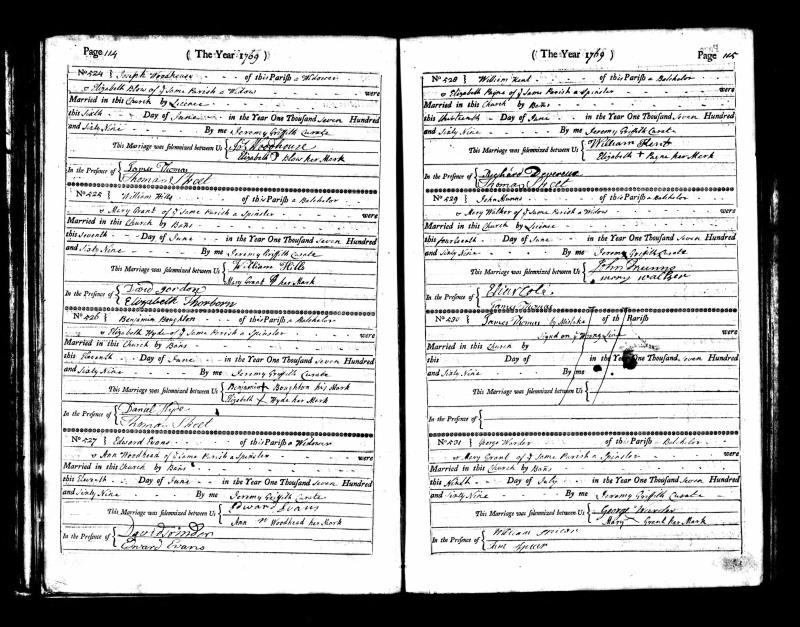 Page 114
( The Year 1769 )
No 524 } Joseph Woodhouse of this Parish a Widower
& Elizabeth Blow of ye Same Parish a Widow were
Married in this Church by Licence
this Sixth Day of June in the Year One Thousand Seven Hundred
and Sixty Nine By me Jeremy Griffith Curate
This Marriage was solemnized between Us { Jos Woodhouse
Elizabeth Blow her Mark
In the Presence of { James Thomas
Thomas Street
No 525 } William Hills of this Parish a Batchelor
& Mary Grant of ye Same Parish a Spinster were
Married in this Church by Bans
this Seventh Day of June in the Year One Thousand Seven Hundred
and Sixty Nine By me Jeremy Griffith Curate
This Marriage was solemnized between Us { William Hills
Mary Grant her Mark
In the Presence of { David Gordon
Elizabeth Thorborn
No 526 } Benjamin Boughton of this Parish a Batchelor
& Elizabeth Hyde of ye Same Parish a Spinster were
Married in this Church by Bans
this Eleventh Day of June in the Year One Thousand Seven Hundred
and Sixty Nine By me Jeremy Griffith Curate
This Marriage was solemnized between Us { Benjamin + Boughton his Mark
Elizabeth + Hyde her Mark
In the Presence of { Daniel
Thomas Street
No 527 } Edward Evans of this Parish a Widower
& Ann Woodhead of ye Same Parish a Spinster were
Married in this Church by Bans
this Eleventh Day of June in the Year One Thousand Seven Hundred
and Sixty Nine By me Jeremy Griffith Curate
This Marriage was solemnized between Us { Edward Evans
Ann Woodhead her Mark
In the Presence of { David
Edward Evans
( The Year 1769 )
Page 115
No 528 } William Kent of this Parish a Batchelor
& Elizabeth Payne of ye Same Parish a Spinster were
Married in this Church by Bans
this thirteenth Day of June in the Year One Thousand Seven Hundred
and Sixty Nine By me Jeremy Griffith Curate
This Marriage was solemnized between Us { William Kent
Elizabeth + Payne her Mark
In the Presence of { Devereux
Thomas Street
No 529 } John Munns of this Parish a Batchelor
& Mary Walker of ye Same Parish a Widow were
Married in this Church by Licence
this fourteenth Day of June in the Year One Thousand Seven Hundred
and Sixty Nine By me Jeremy Griffith Curate
This Marriage was solemnized between Us { John Munns
mary walker
In the Presence of { Elias Cole
James Thomas
No 530 } James Thomas by Mistake of th Parish
Signed on ye Wrong Line
Married in this Church by
this Day of in the Year One Thousand Seven Hundred
and Sixty Nine By me
This Marriage was solemnized between Us {
In the Presence of {
No 531 } George Warder of this Parish Batchelor
& Mary Grant of ye Same Parish a Spinster were
Married in this Church by Bans
this Ninth Day of July in the Year One Thousand Seven Hundred
and Sixty Nine By me Jeremy Griffith Curate
This Marriage was solemnized between Us { George Warder
Mary Grant her Mark
In the Presence of { William